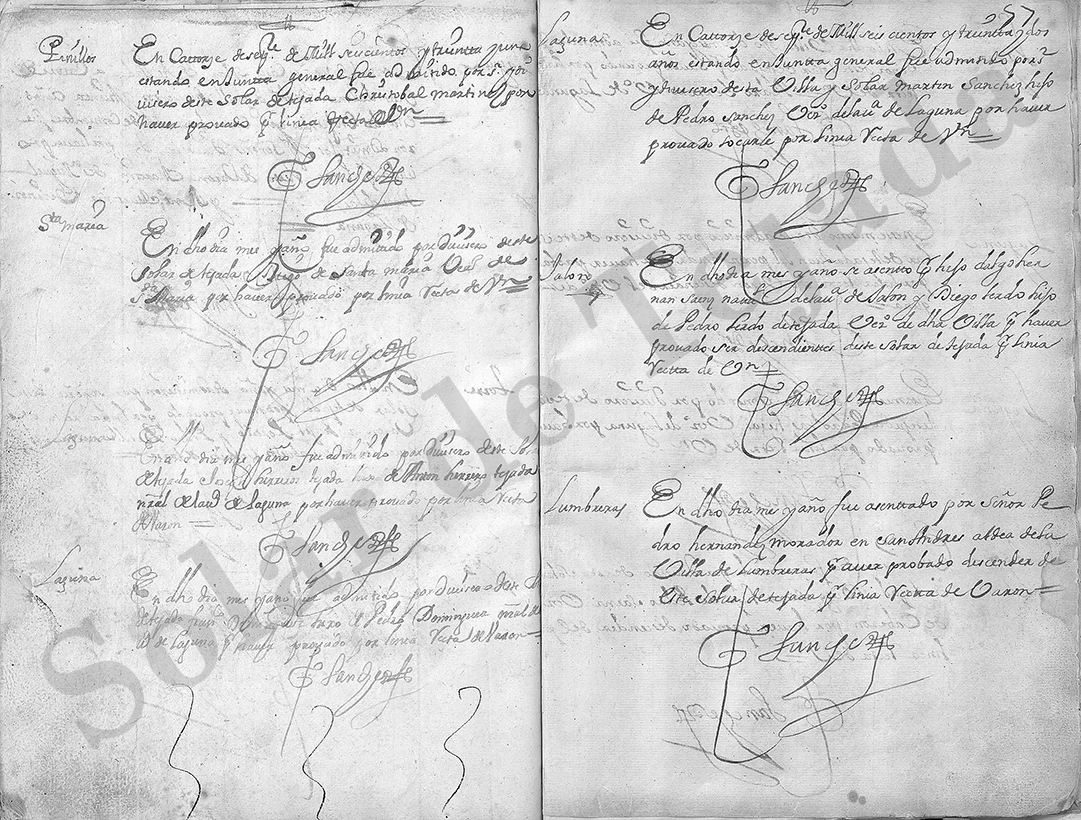 Pinillos
En Catorze de sepe. de Mill seiscientos y treintta y uno
estando en Juntta general fue admitido por sr. y di
visero deste Solar de tejada Christobal martinez por
haver provado pr linia Recta de Vn
F Sanchez
Sta maria
En dho dia mes y año fue admitido por diuisero deste
Solar de tejada Diego de Santa maria Vezo. de
Sta Maria por haver provado por linia Recta de Vn
F Sanchez
Laguna
En dho dia mes y año fue admitido por Diuisero deste Solar
de tejada Jose herreros tejada hixo de Anton herrero tejada
nral de la Va de Laguna por haver provado por linia Recta
de Varon
F Sanchez
Laguna
En dho dia mes y año fue admitido por diuisero deste
de tejada Juan Dominguez hixo de Pedro Dominguez nral de
Va de Laguna pr haver provado por linia Recta de Varon
F Sanchez
57
Laguna
En Catorze de sepe. de Mill seiscientos y treintta y dos
años estando en Juntta general fue admitido por sr.
y diuisero desta Villa y Solar Martin Sanchez hijo
de Pedro Sanchez Vezo. de la Va de Laguna por haver
provado tocarle por linia Recta de Vn
F Sanchez
Jalon
En dho dia mes y año se asentto pr hijo dalgo her
nan saenz de la va de Jalon y Diego lerdo hijo
de Pedro lerdo de tejada Vezo. de dha Villa pr haver
provado ser descendientes deste solar de tejada pr linia
Rectta de Vn
F Sanchez
Lumbreras
En dho dia mes y año fue asenttado por señor Pe
dro hernandez morador en san Andres aldea de la
Villa de Lumbreras pr aver probado descender de
este solar de tejada pr linia Rectta de Varon
F Sanchez
Solar de Tejada